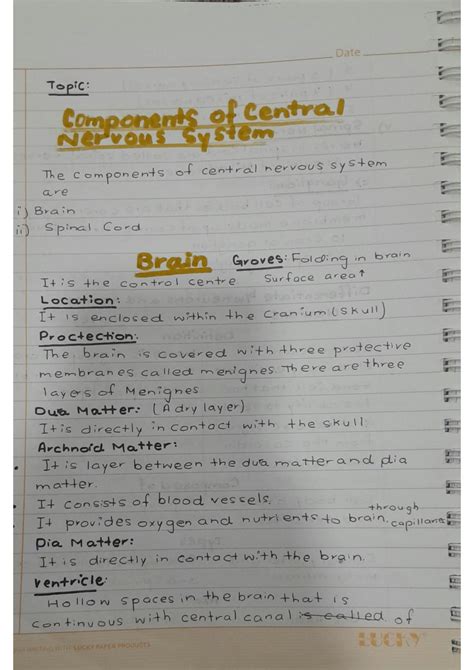 Date
Topic:
Components of Central
Nervous System
The components of central nervous system
are
i) Brain
ii) Spinal Cord
Brain Groves: Folding in brain
It is the control centre Surface area↑
Location:
It is enclosed within the cranium (skull)
Proctection:
The brain is covered with three protective
membranes called menignes. There are three
layers of Menignes
Dua Matter: (A dry layer)
It is directly in contact with the skull
Archnoid Matter:
• It is layer between the dua matter and pia
matter.
• It consists of blood vessels.
• It provides oxygen and nutrients to brain. through capillaries
Pia Matter:
• It is directly in contact with the brain.
Ventricle:
Hollow spaces in the brain that is
continuous with central canal is called of
LUCKY PAPER PRODUCTS
LUCKY